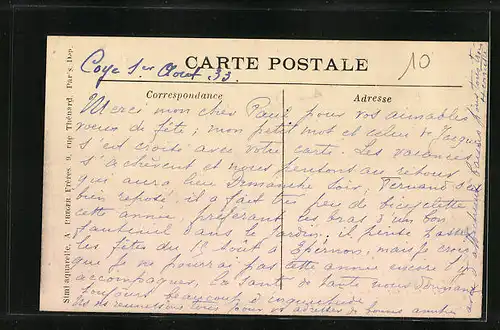 CARTE POSTALE
10
Coye 1er Août 33
Correspondance
Adresse
Merci mon cher Paul pour vos aimables
vœux de fête; mon petit mot et celui de Jacques
s'est croisé avec votre carte. Les vacances
s'achèvent et nous pensons au retour
qui aura lieu Dimanche soir; Fernand s'est
bien reposé, il a fait très peu de bicyclette
cette année, préférant les bras d'un bon
fauteuil dans le jardin, il pense
les fêtes du 15 Août à Epernon, mais je crois
que je ne pourrai pas cette année encore l'y
accompagner, la santé de tante nous donnant
toujours beaucoup d'inquiétude
pour vos
Simi aquarelle, A Frères, 9, rue Thénard, Paris Dep.